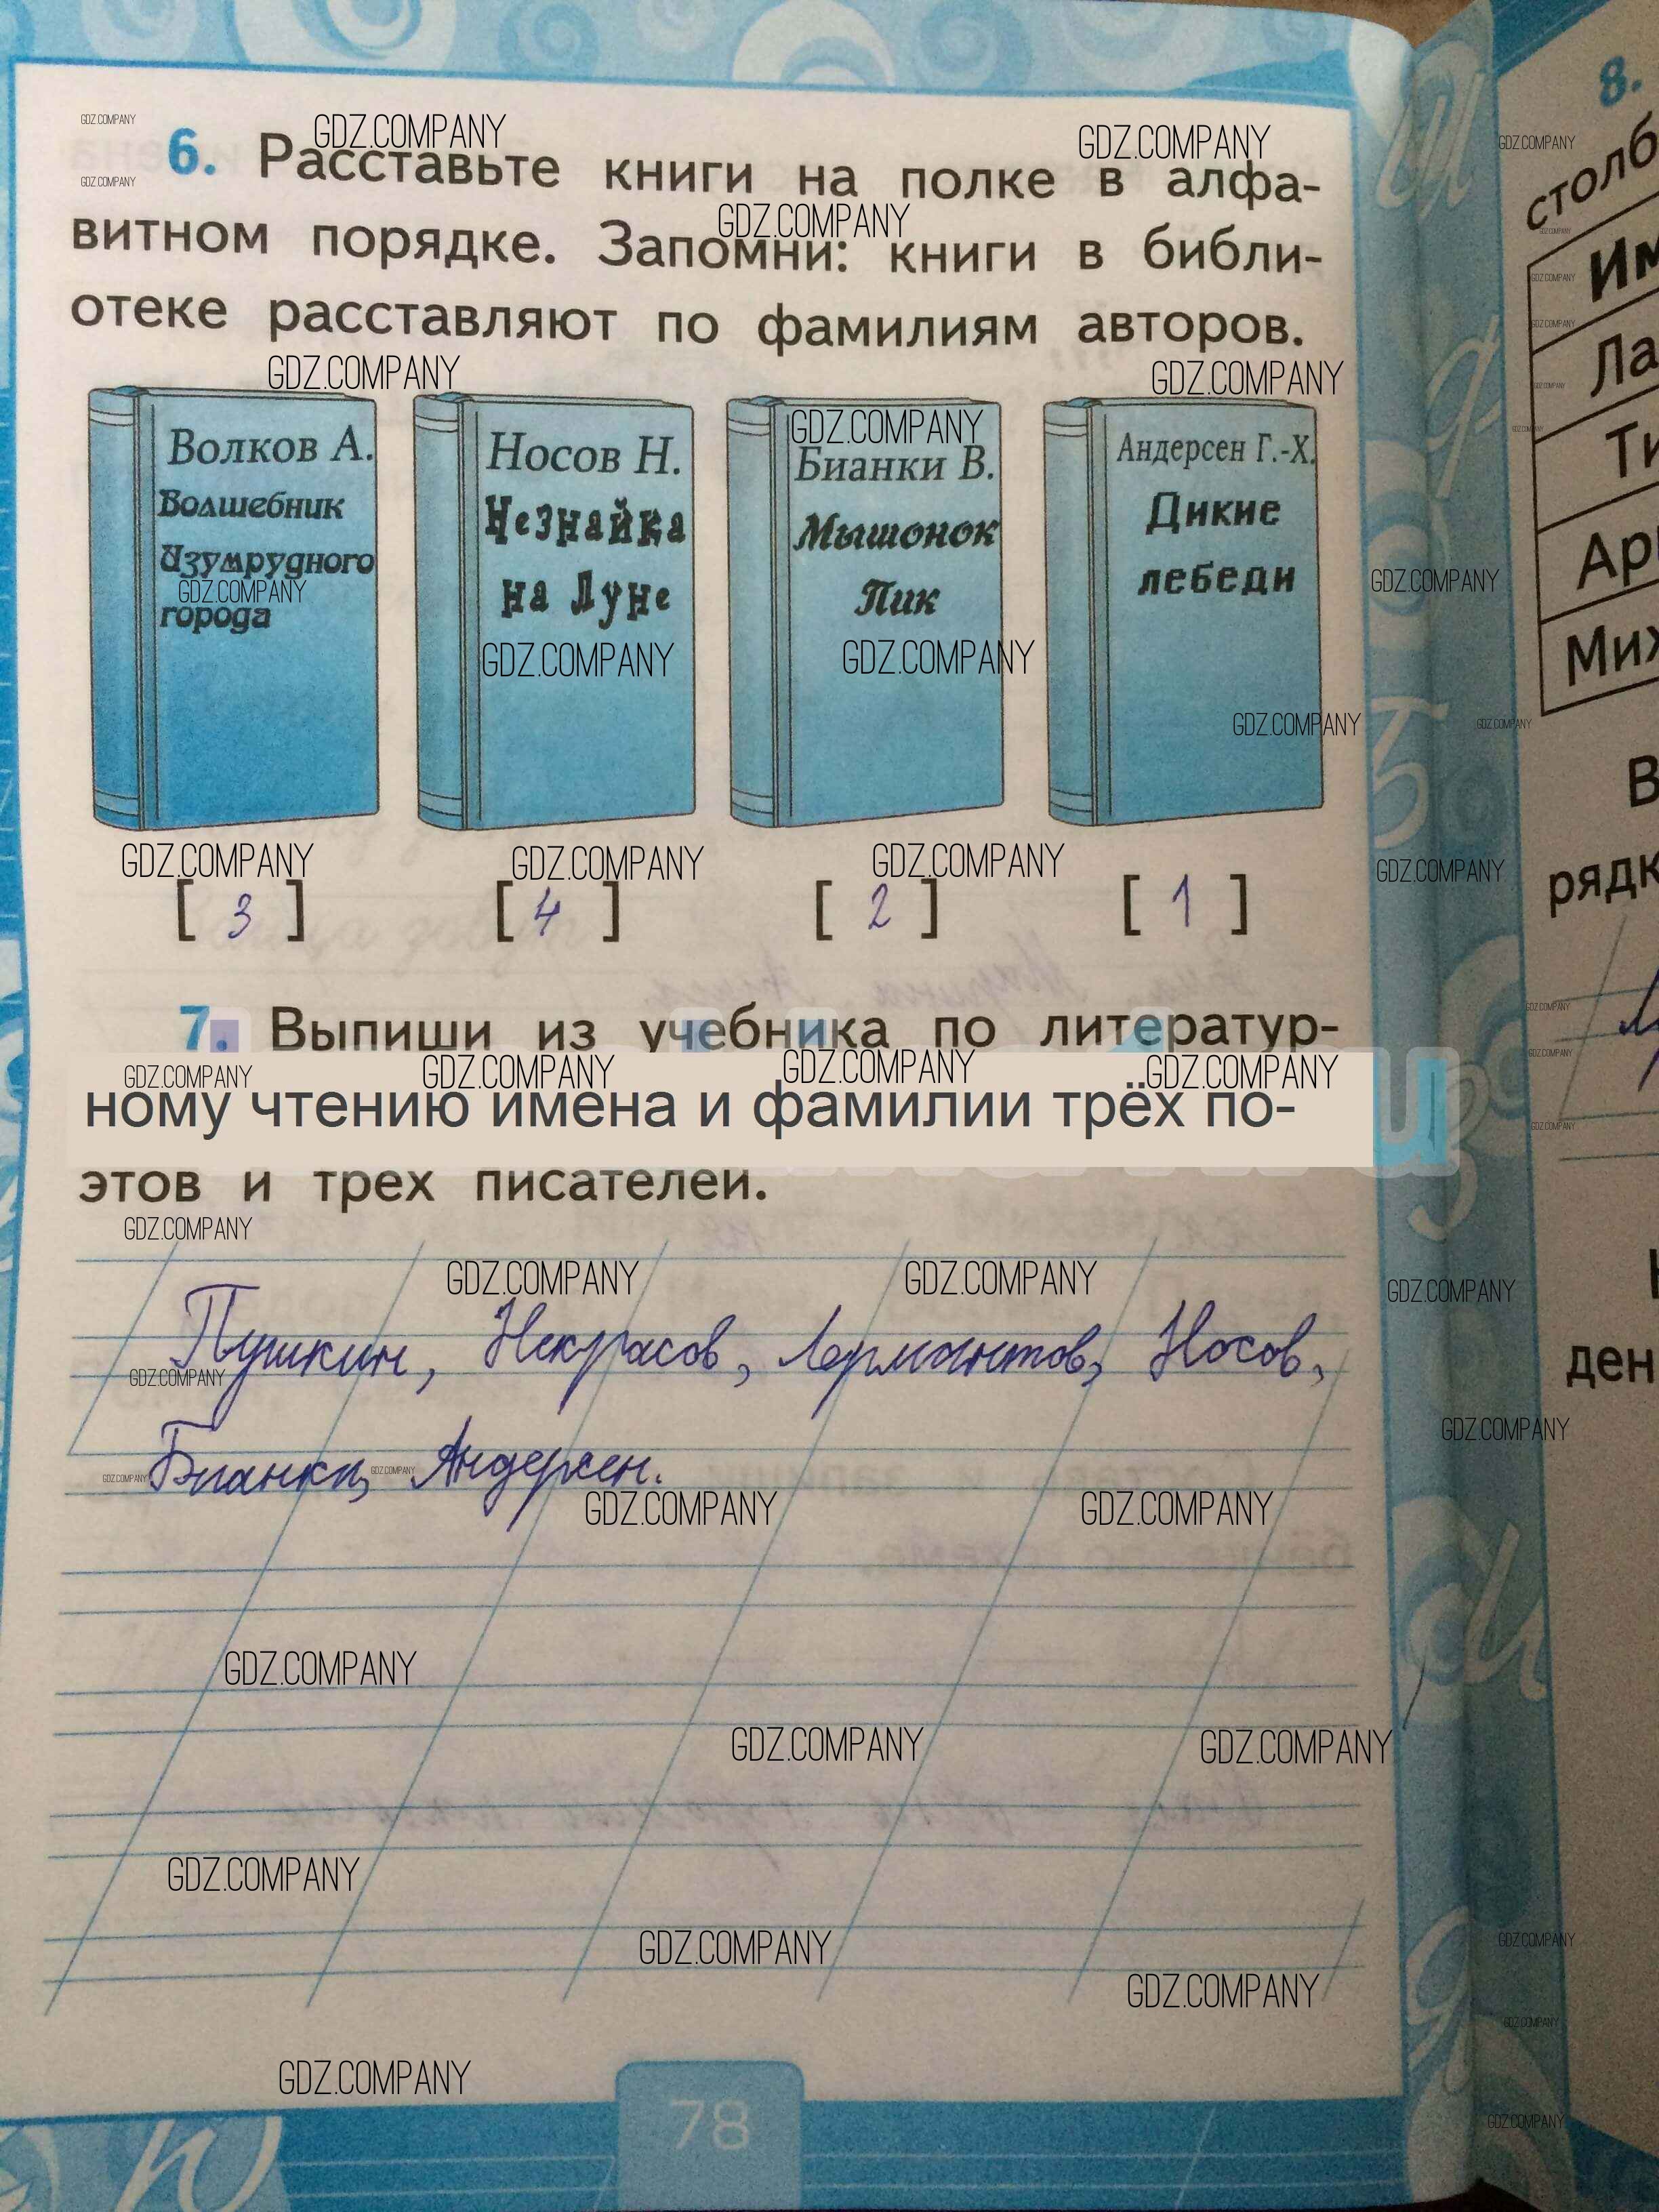 6. Расставьте книги на полке в алфа-
витном порядке. Запомни: книги в библи-
отеке расставляют по фамилиям авторов.
Волков А.
Волшебник
Изумрудного
города
Носов Н.
Незнайка
на Луне
Бианки В.
Мышонок
Пик
Андерсен Г.-Х.
Дикие
лебеди
[ 3 ] [ 4 ] [ 2 ] [ 1 ]
7. Выпиши из учебника по литератур-
ному чтению имена и фамилии трёх по-
этов и трех писателей.
Пушкин, Некрасов, Лермонтов, Носов,
Бианки, Андерсен.
78
8.
столб
Им
Ла
Ти
Ар
Мих
В
рядк
ден
GDZ.COMPANY